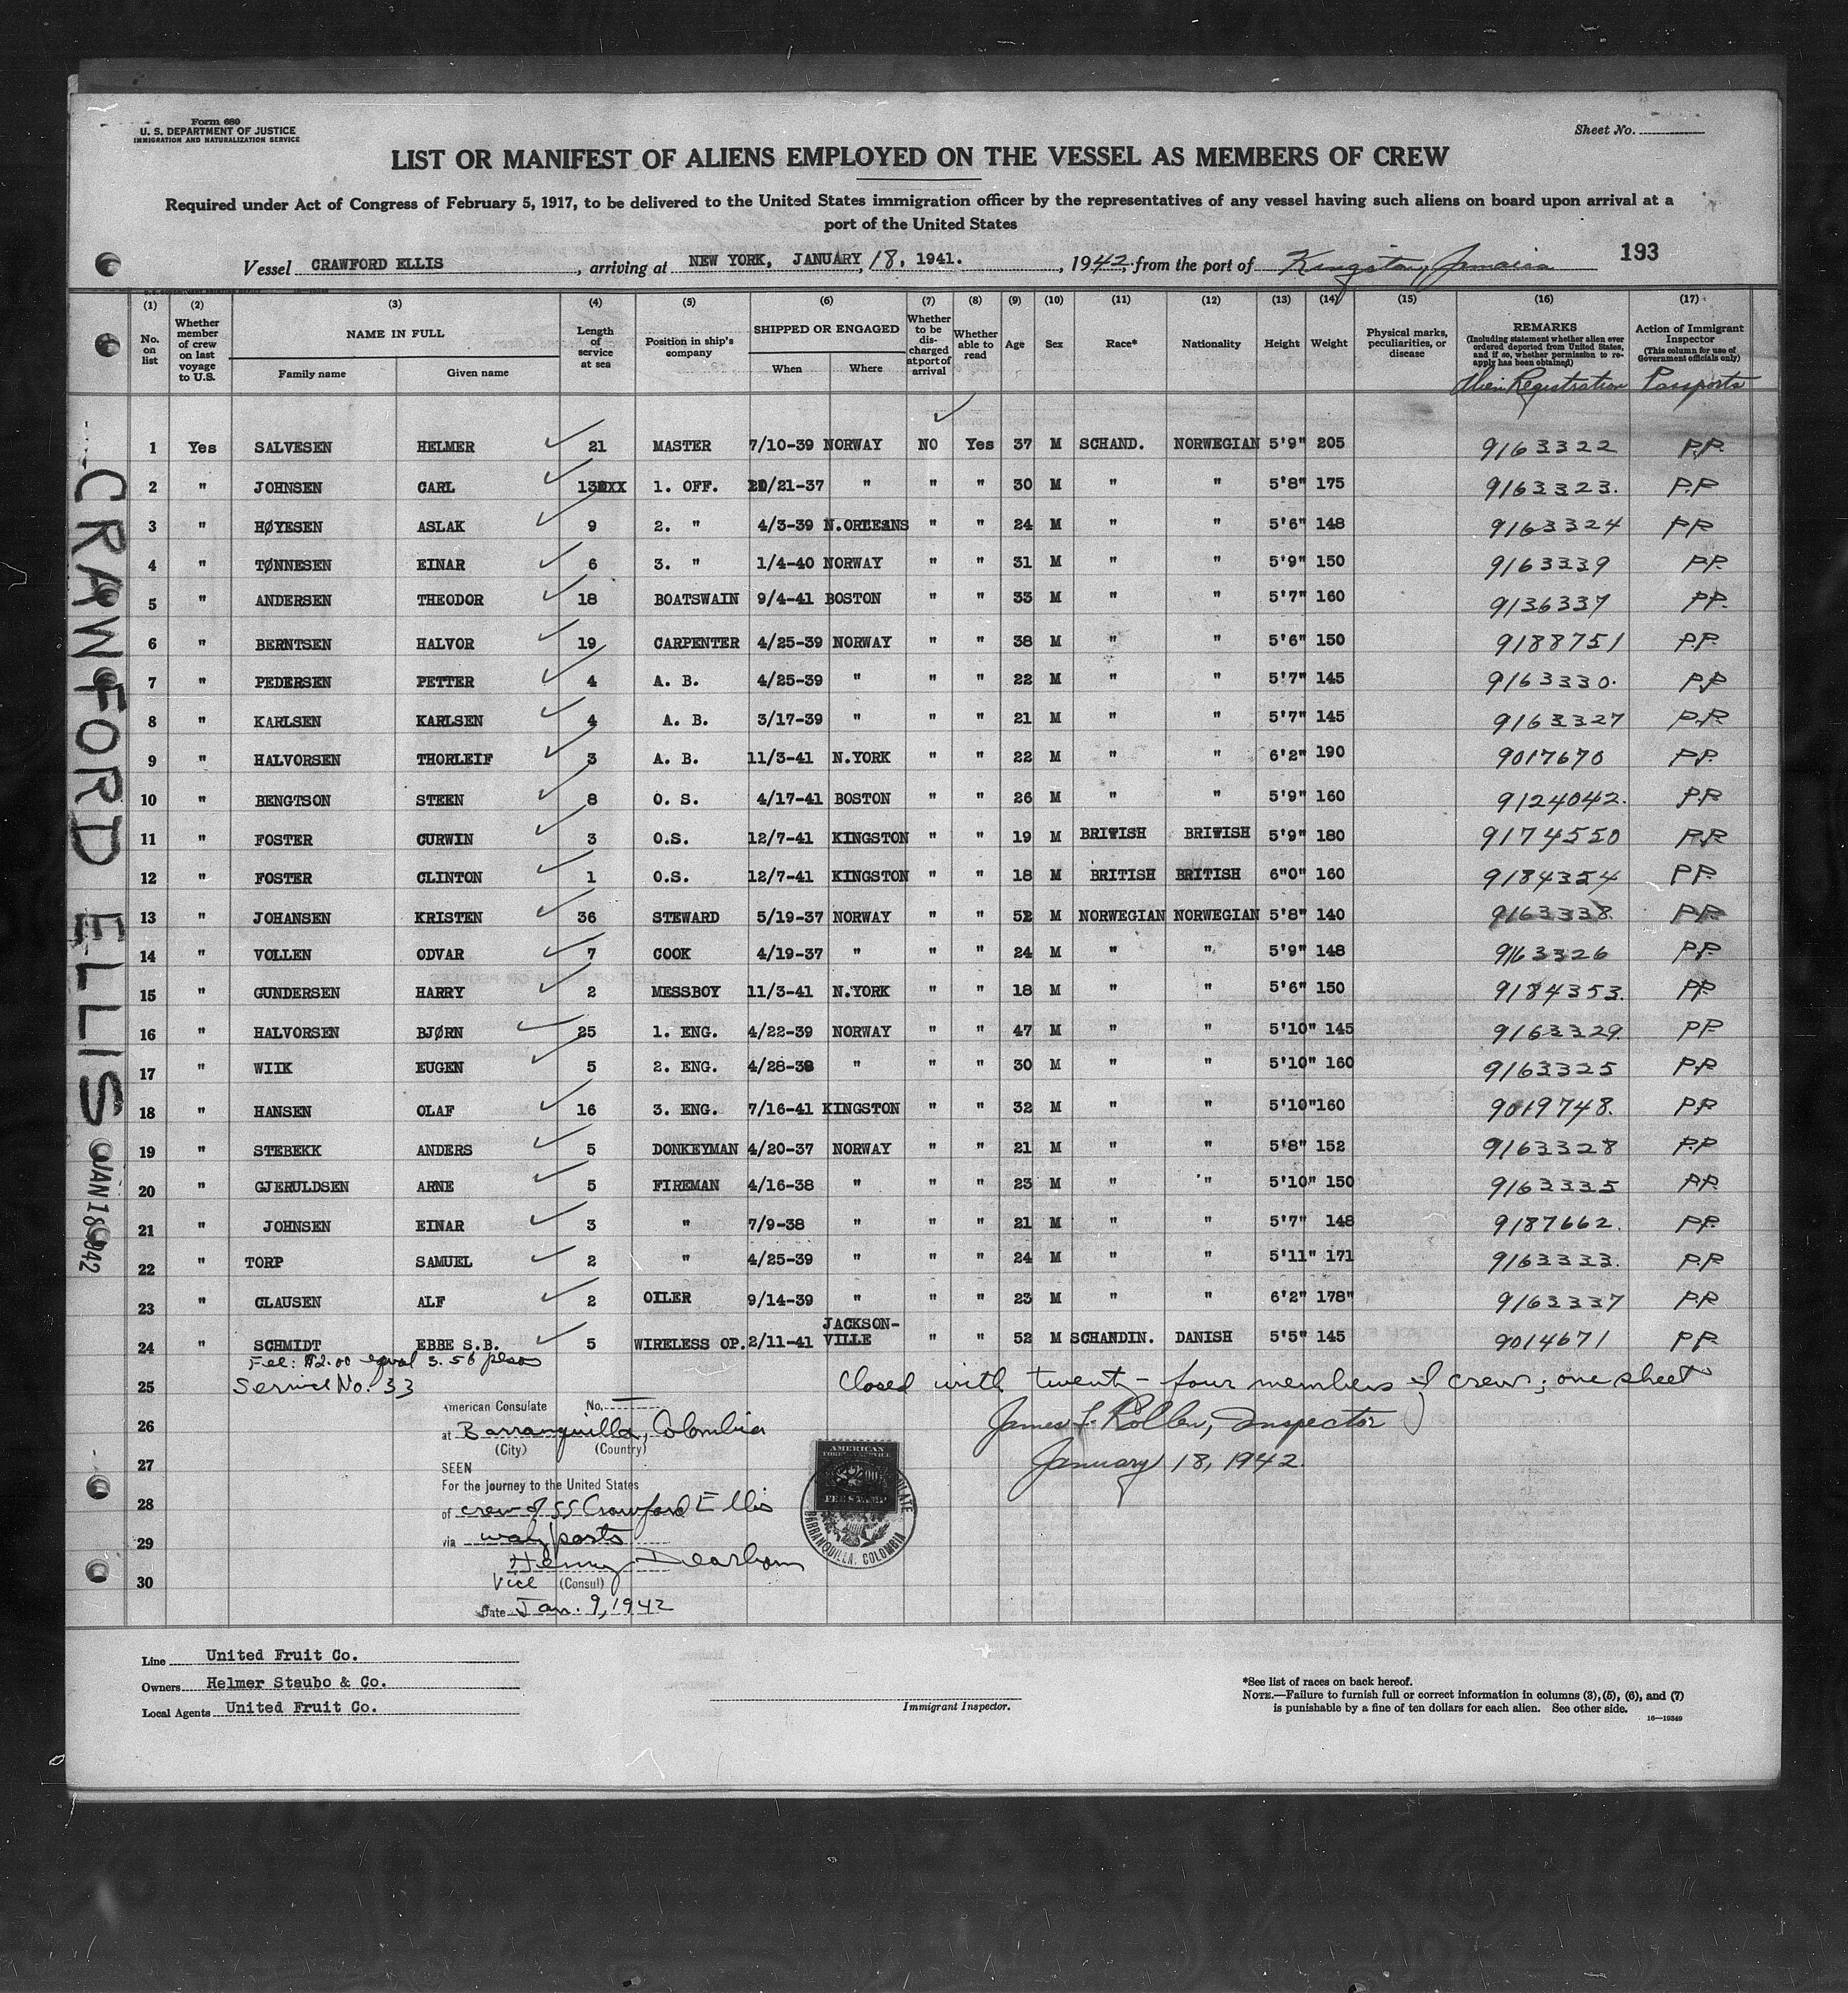 Form 680
U. S. DEPARTMENT OF JUSTICE
IMMIGRATION AND NATURALIZATION SERVICE
Sheet No.
LIST OR MANIFEST OF ALIENS EMPLOYED ON THE VESSEL AS MEMBERS OF CREW
Required under Act of Congress of February 5, 1917, to be delivered to the United States immigration officer by the representatives of any vessel having such aliens on board upon arrival at a
port of the United States
193
Vessel CRAWFORD ELLIS, arriving at NEW YORK, JANUARY, 18, 1941., 1942, from the port of Kingston, Jamaica
(1) (2) (3) (4) (5) (6) (7) (8) (9) (10) (11) (12) (13) (14) (15) (16) (17)
No. on list
Whether member of crew on last voyage to U.S.
NAME IN FULL
Family name Given name
Length of service at sea
Position in ship's company
SHIPPED OR ENGAGED
When Where
Whether to be discharged at port of arrival
Whether able to read
Age
Sex
Race*
Nationality
Height
Weight
Physical marks, peculiarities, or disease
REMARKS
(Including statement whether alien ever ordered deported from United States, and if so, whether permission to reapply has been obtained)
Alien Registration
Action of Immigrant Inspector
(This column for use of Government officials only)
Passports
1 Yes SALVESEN HELMER 21 MASTER 7/10-39 NORWAY NO Yes 37 M SCHAND. NORWEGIAN 5'9" 205 9163322 P.P.
2 " JOHNSEN CARL 13 1. OFF. /21-37 " " " 30 M " " 5'8" 175 9163323. P.P
3 " HØYESEN ASLAK 9 2. " 4/3-39 N.ORLEANS " " 24 M " " 5'6" 148 9163324 PP
4 " TØNNESEN EINAR 6 3. " 1/4-40 NORWAY " " 31 M " " 5'9" 150 9163339 PP.
5 " ANDERSEN THEODOR 18 BOATSWAIN 9/4-41 BOSTON " " 33 M " " 5'7" 160 9136337 PP.
6 " BERNTSEN HALVOR 19 CARPENTER 4/25-39 NORWAY " " 38 M " " 5'6" 150 9188751 P.P.
7 " PEDERSEN PETTER 4 A. B. 4/25-39 " " " 22 M " " 5'7" 145 9163330. P.P
8 " KARLSEN KARLSEN 4 A. B. 3/17-39 " " " 21 M " " 5'7" 145 9163327 P.P.
9 " HALVORSEN THORLEIF 3 A. B. 11/3-41 N.YORK " " 22 M " " 6'2" 190 9017670 P.P.
10 " BENGTSON STEEN 8 O. S. 4/17-41 BOSTON " " 26 M " " 5'9" 160 9124042. P.P
11 " FOSTER CURWIN 3 O.S. 12/7-41 KINGSTON " " 19 M BRITISH BRITISH 5'9" 180 9174550 P.P.
12 " FOSTER CLINTON 1 O.S. 12/7-41 KINGSTON " " 18 M BRITISH BRITISH 6"0" 160 9184354 PP.
13 " JOHANSEN KRISTEN 36 STEWARD 5/19-37 NORWAY " " 52 M NORWEGIAN NORWEGIAN 5'8" 140 9163338 P.P.
14 " VOLLEN ODVAR 7 COOK 4/19-37 " " " 24 M " " 5'9" 148 9163326 P.P.
15 " GUNDERSEN HARRY 2 MESSBOY 11/3-41 N.YORK " " 18 M " " 5'6" 150 9184353. PP.
16 " HALVORSEN BJØRN 25 1. ENG. 4/22-39 NORWAY " " 47 M " " 5'10" 145 9163329. PP
17 " WIIK EUGEN 5 2. ENG. 4/28-38 " " " 30 M " " 5'10" 160 9163325 P.P.
18 " HANSEN OLAF 16 3. ENG. 7/16-41 KINGSTON " " 32 M " " 5'10"160 9019748. P.P
19 " STEBEKK ANDERS 5 DONKEYMAN 4/20-37 NORWAY " " 21 M " " 5'8" 152 9163328 P.P
20 " GJERULDSEN ARNE 5 FIREMAN 4/16-38 " " " 23 M " " 5'10" 150 9163335 PP.
21 " JOHNSEN EINAR 3 " 7/9-38 " " " 21 M " " 5'7" 148 9187662. PP.
22 " TORP SAMUEL 2 " 4/25-39 " " " 24 M " " 5'11" 171 9163333. P.P
23 " CLAUSEN ALF 2 OILER 9/14-39 " " " 23 M " " 6'2" 178" 9163337 P.P.
24 " SCHMIDT EBBE S.B. 5 WIRELESS OP. 2/11-41 JACKSON-VILLE " " 52 M SCHANDIN. DANISH 5'5" 145 9014671 PP.
Fee: $2.00 equal 3.56 pesos
25 Service No. 33
Closed with twenty-four members of crew; one sheet
American Consulate No.
26 at Barranquilla, Colombia
(City) (Country)
James Inspector
27 SEEN
January 18, 1942.
For the journey to the United States
28 of crew of SS Crawford Ellis
29 via way ports
Henry Dearborn
30 Vice (Consul)
Date Jan. 9, 1942
AMERICAN
FEE STAMP
BARRANQUILLA, COLOMBIA
CRAWFORD ELLIS
JAN 18 1942
Line United Fruit Co.
Owners Helmer Staubo & Co.
Local Agents United Fruit Co.
Immigrant Inspector.
*See list of races on back hereof.
NOTE.—Failure to furnish full or correct information in columns (3), (5), (6), and (7)
is punishable by a fine of ten dollars for each alien. See other side.
16—19349